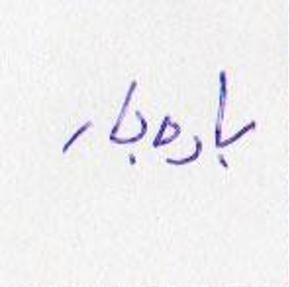 باره‌بار